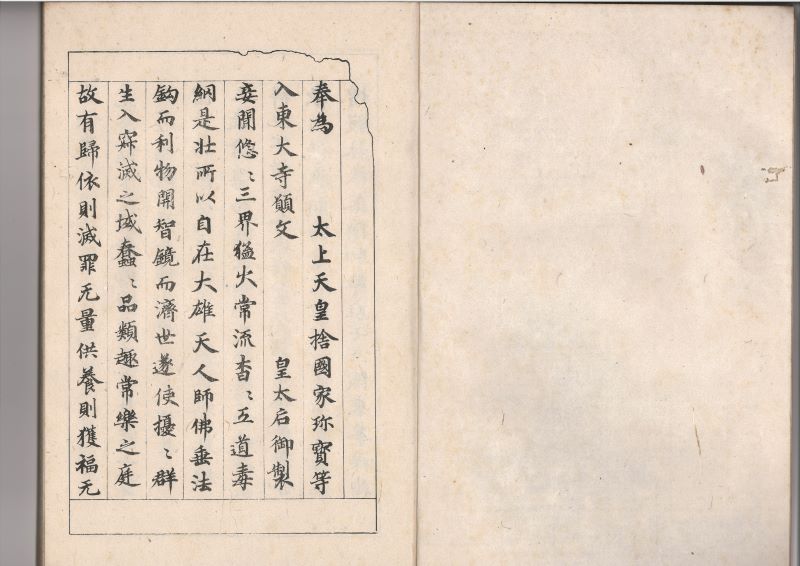 奉為　太上天皇捨國家珎寳等
入東大寺願文　皇太后御製
妾聞悠〻三界猛火常流杳〻五道毒
網是壮所以自在大雄天人師佛垂法
鈎而利物開智鏡而濟世遂使擾〻群
生入寂滅之城蠢〻品類趣常樂之庭
故有歸依則滅罪无量供養則獲福无